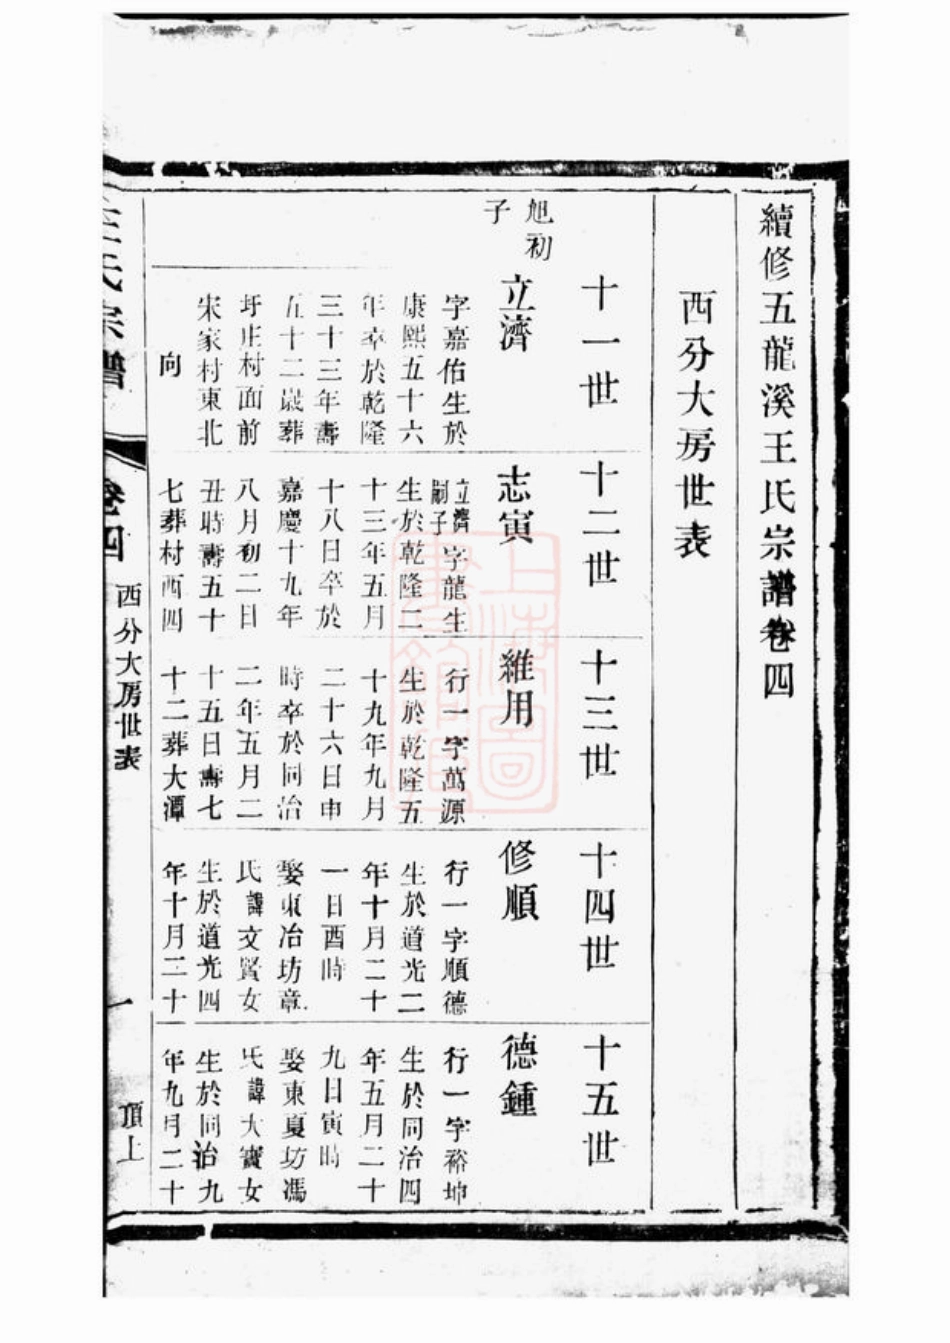 續修五龍溪王氏宗譜卷四
西分大房世表
十一世
十二世
十三世
十四世
十五世
旭初
子
立濟
字嘉佑生於
康熙五十六
年卒於乾隆
三十三年壽
五十二歲葬
圩庄村面前
宋家村東北
向
志寅
立濟
嗣子
字龍生
生於乾隆二
十三年五月
十八日卒於
嘉慶十九年
八月初二日
丑時壽五十
七葬村西四
維用
行一字萬源
生於乾隆五
十九年九月
二十六日申
時卒於同治
二年五月二
十五日壽七
十二葬大潭
修順
行一字順德
生於道光二
年十月二十
一日酉時
娶東冶坊章
氏諱文賢女
生於道光四
年十月二十
德鍾
行一字裕坤
生於同治四
年五月二十
九日寅時
娶東夏坊馮
氏諱大寶女
生於同治九
年九月二十
王氏宗譜
卷四
西分大房世表
一
頂上
上海圖
書館藏